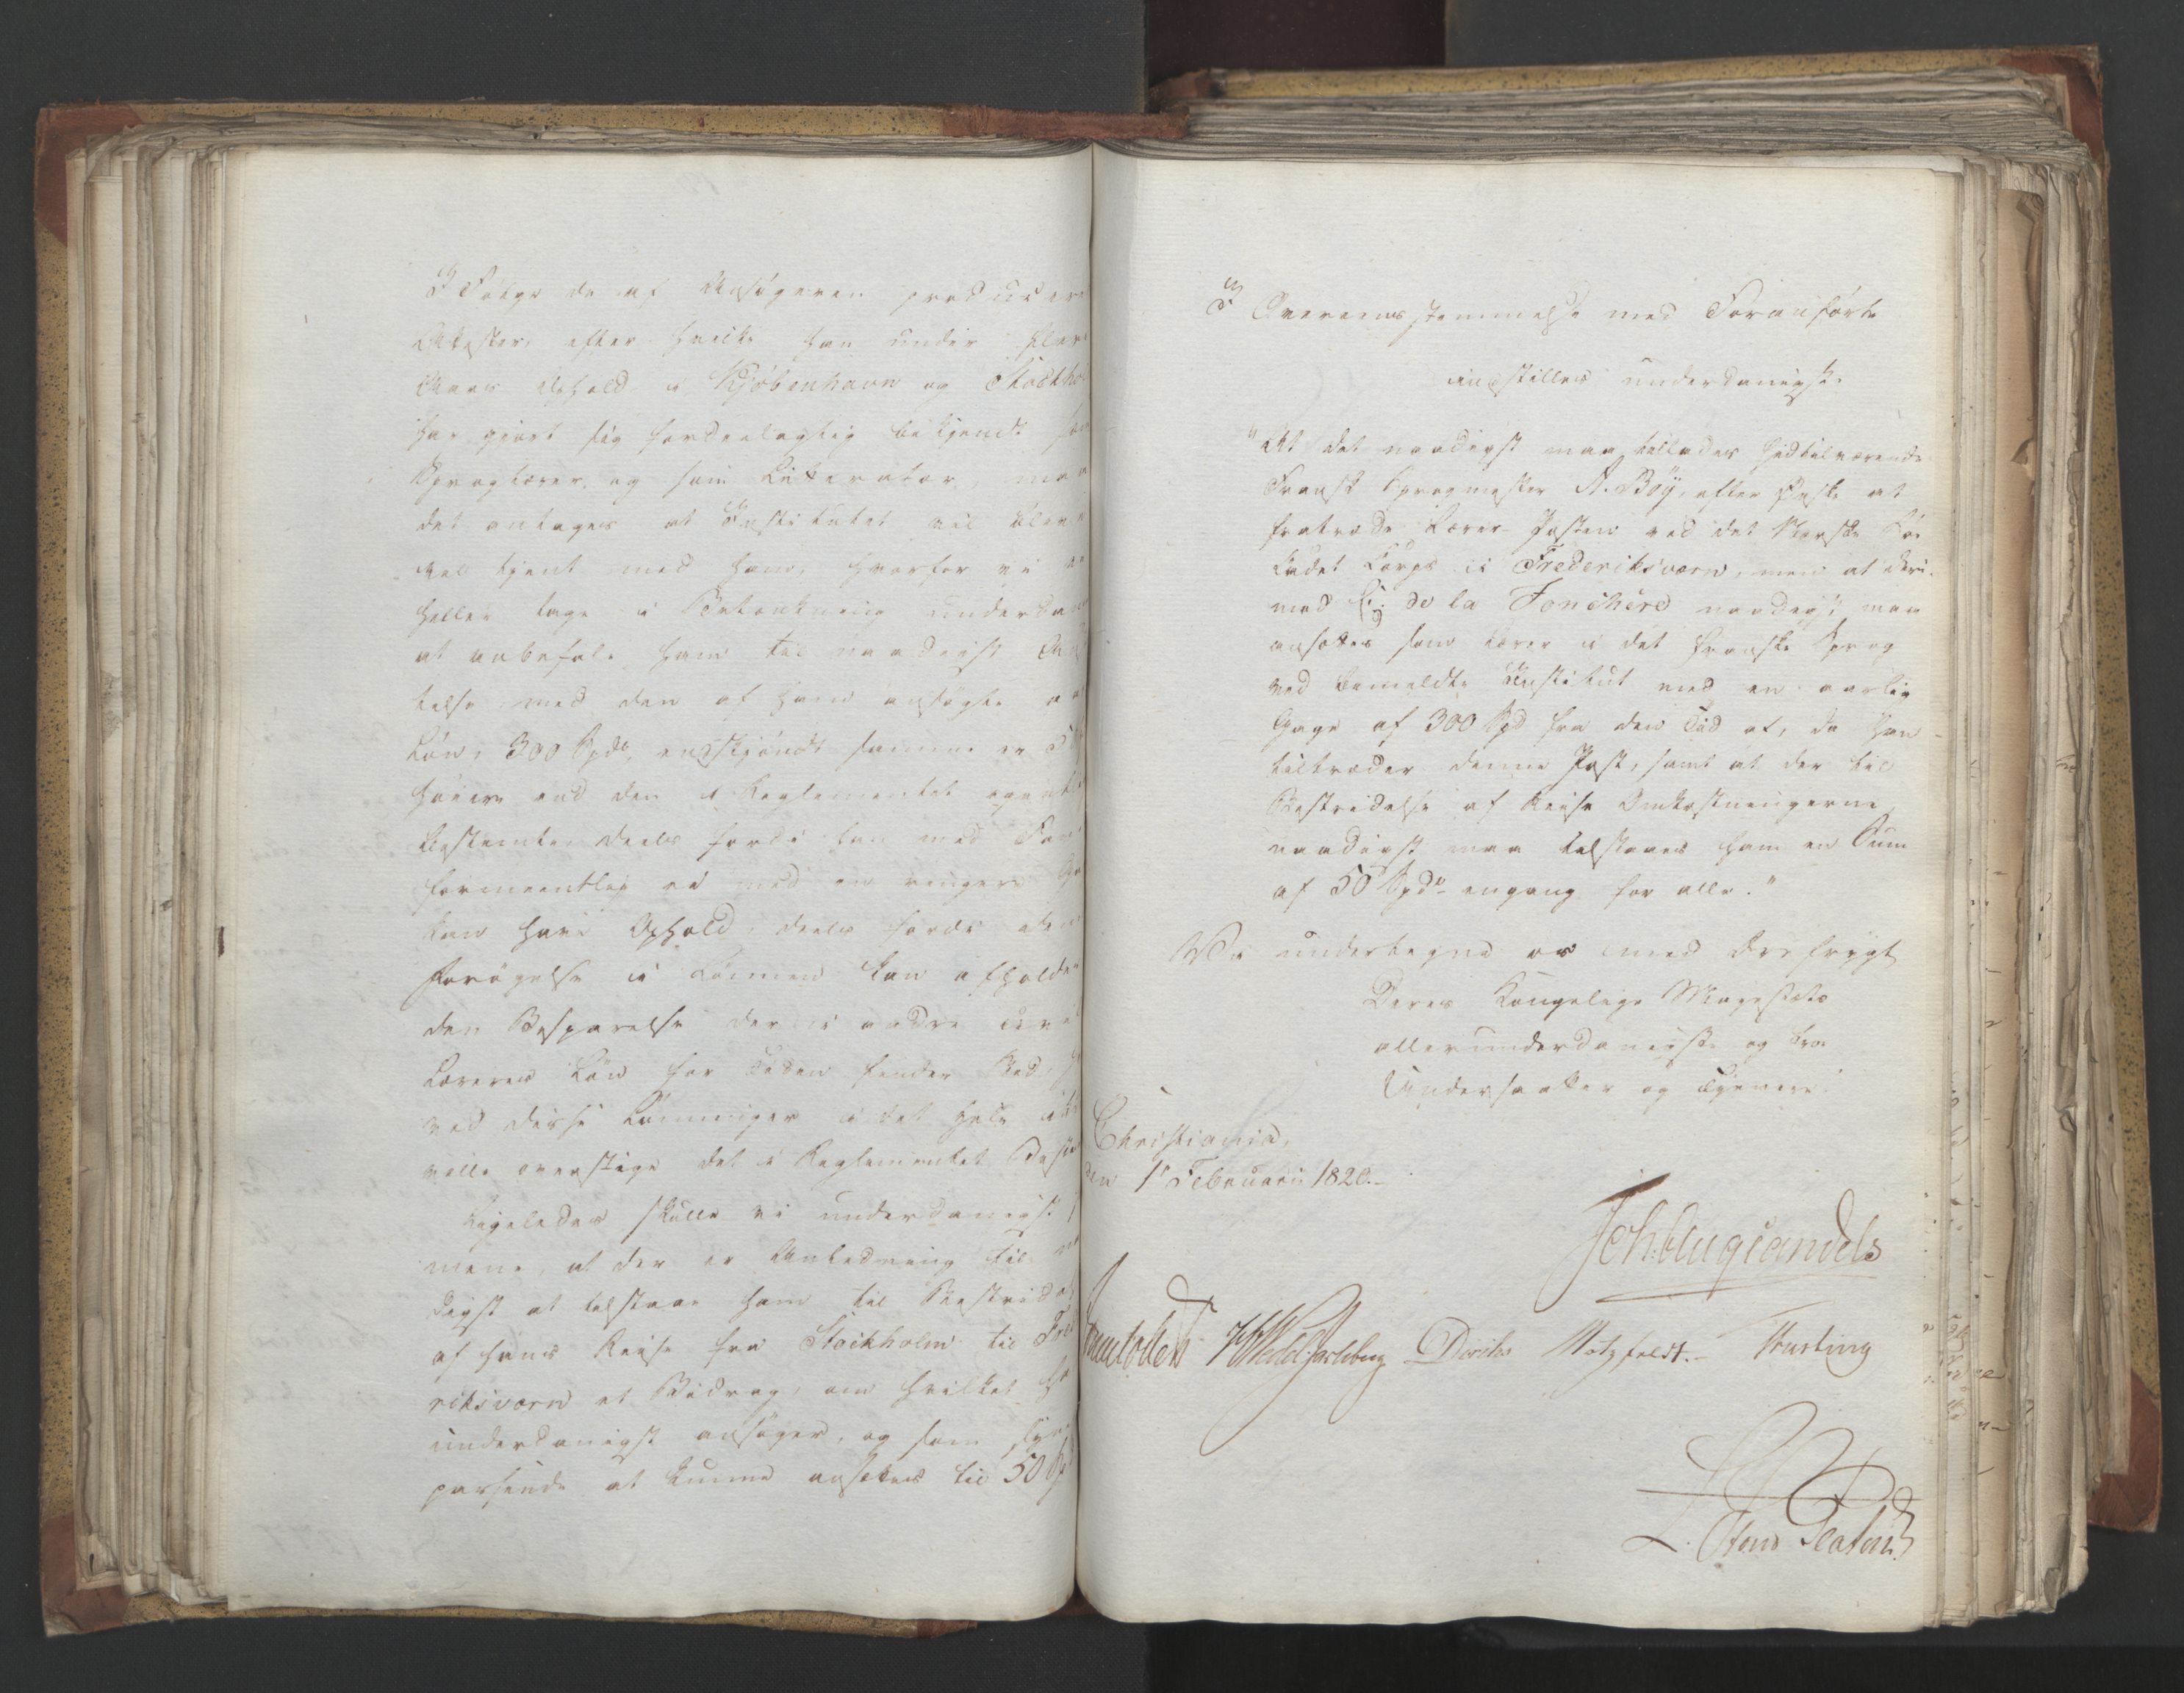 I Følge de af Ansøgeren producere
Attester, efter hvilke han under flere
Aars Ophold i Kjøbenhavn og Stockhol
har gjort sig fordeelagtig bekjendt som
Sproglærer og som Literator, maa
det antages at Institutet vil blive
vel tjent med ham, hvorfor vi ei
heller tage i Betænkning underdan
at anbefale ham til naadigst Ansæt
telse med den af ham ansøgte
Løn, 300 Spd, endskjøndt samme er
høiere end den i Reglementet egentl
bestemte, deels fordi han med Fami
formeentlig ei med en ringere Ga
kan have Ophold, deels fordi den
Forøgelse i Lønnen kan afholdes
den Besparelse der i andre civil
Læreres Løn for Tiden finder Sted,
ved disse Lønninger i det Hele ikke
ville overstige det i Reglementet Bestem
Ligeledes skulle vi underdanigst
mene, at der er Anledning til naa
digst at tilstaae ham til Bestridelse
af hans Reise fra Stockholm til Fred
riksværn et Bidrag, om hvilket han
underdanigst ansøger, og som synes
passende at kunne ansættes til 50 Sp
I Overeensstemmelse med Foranførte
indstilles underdanigst:
"At det naadigst maa tillades hidtilværende
Fransk Sprogmester A. Böÿ, efter Ønske at
fratræde Lærer-Posten ved det Norske Søe
Cadet Corps i Frederiksværn, men at deri-
mod de la Jonchère naadigst maa
ansættes som Lærer i det franske Sprog
ved bemeldte Institut med en aarlig
Gage af 300 Spd fra den Tid af, da han
tiltræder denne Post, samt at der til
Bestridelse af Reise Omkostningerne
naadigst maa tilstaaes ham en Sum
af 50 Spd engang for alle."
Vi undertegne os med Ærefrygt
Deres Kongelige Majestæts
allerunderdanigste og troe
Undersaatter og Tjenere.
Christiania,
den 1 Februarii 1820.
Joh: Aug: Sandels
Sommerhielm HWedel Jarlsberg Diriks Motzfeldt. Krusting
L. Stoud Platou